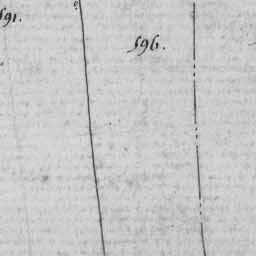 591.
596.